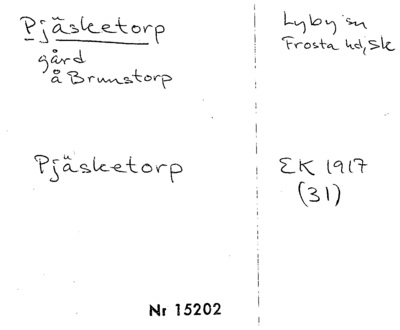 Pjäsketorp
gård
å Brunstorp
Lyby sn
Frosta hd, Sk
Pjäsketorp
EK 1917
(31)
Nr 15202